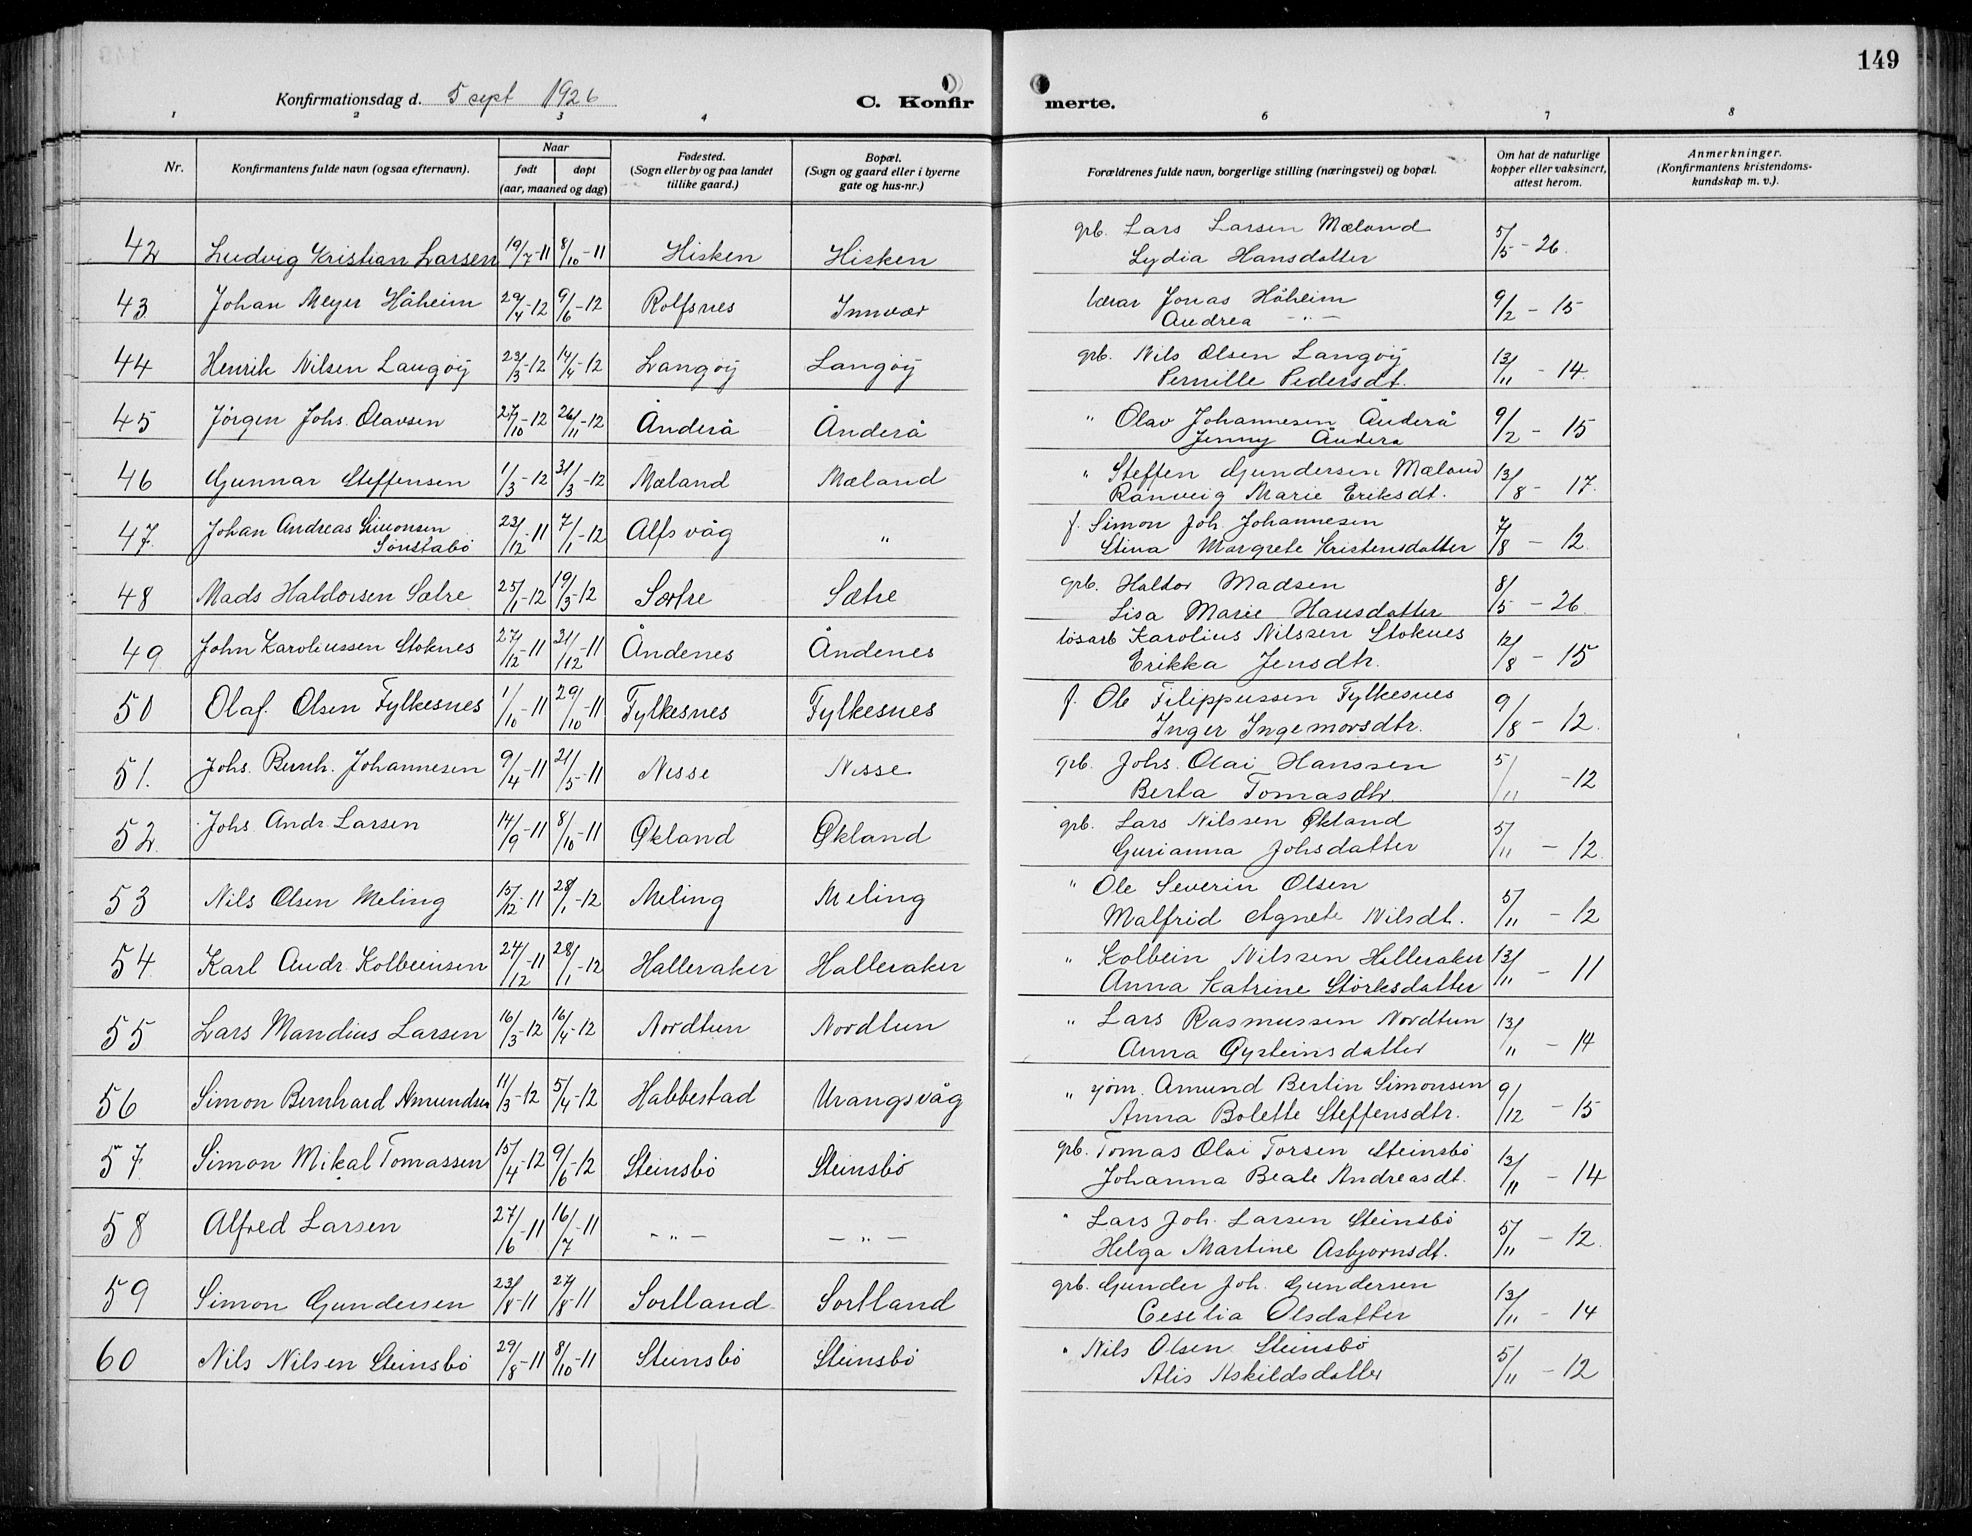 149
Konfirmationsdag d. 5 sept 1926 C. Konfirmerte.
1 2 3 4 6 7 8
Nr. Konfirmantens fulde navn (ogsaa efternavn). Naar født døpt (aar, maaned og dag) Fødested. (Sogn eller by og paa landet tillike gaard.) Bopæl. (Sogn og gaard eller i byerne gate og hus-nr.) Forældrenes fulde navn, borgerlige stilling (næringsvei) og bopæl. Om hat de naturlige kopper eller vaksinert, attest herom. Anmerkninger. (Konfirmantens kristendomskundskap m. v.).
42 Ludvig Kristian Larsen 19/7-11 8/10-11 Hisken Hisken grb. Lars Larsen Mæland 5/5-26.
Lydia Hansdatter
43 Johan Meyer Håheim 29/4-12 9/6-12 Rolfsnes Innvær lærar Jonas Håheim 9/2-15
Andrea -"-
44 Henrik Nilsen Langøy 23/3-12 14/4-12 Langøy Langøy grb. Nils Olsen Langøy 13/11-14.
Pernille Pedersdt.
45 Jørgen Johs. Olavsen 27/10-12 26/11-12 Ånderå Ånderå " Olav Johannesen Ånderå 9/2-15
Jenny Åndera
46 Gunnar Steffensen 1/3-12 31/3-12 Mæland Mæland " Steffen Gundersen Mæland 13/8-17.
Ranveig Marie Eriksdt.
47. Johan Andreas Simonsen Sønstabø 23/12-11 7/1-12 Alfsvåg " f. Simon Joh. Johannesen 7/8-12.
Stina Margrete Kristensdatter
48 Mads Haldorsen Sætre 25/1-12 19/3-12 Sætre Sætre grb. Haldor Madsen 8/5-26.
Lisa Marie Hansdatter
49 John Karoliussen Stoknes 27/12-11 31/12-11 Åndenes Åndenes løsarb Karolius Nilssen Stoknes 12/8-15
Erikka Jensdtr.
50 Olaf. Olsen Fylkesnes 1/10-11 29/10-11 Fylkesnes Fylkesnes f. Ole Filippussen Fylkesnes 9/8-12.
Inger Ingemorsdtr.
51. Johs. Bernh. Johannesen 9/4-11 21/5-11 Nesse Nesse grb. Johs. Olai Hanssen 5/11-12
Berta Tomasdtr.
52. Johs. Andr. Larsen 14/9-11 8/10-11 Økland Økland grb. Lars Nilssen Økland 5/11-12.
Gurianna Johsdatter
53 Nils Olsen Meling 15/12-11 28/1-12 Meling Meling " Ole Severin Olsen 5/11-12
Malfrid Agnete Nilsdt.
54. Karl Andr. Kolbeinsen 24/12-11 28/1-12 Halleraker Halleraker " Kolbein Nilssen Halleraker 13/11-11
Anna Katrine Størksdatter
55 Lars Mandius Larsen 16/3-12 16/4-12 Nordtun Nordtun " Lars Rasmussen Nordtun 13/11-14
Anna Øysteinsdatter
56 Simon Bernhard Amundsen 11/3-12 5/4-12 Habbestad Urangsvåg " Amund Bertin Simonsen 9/12-15
Anna Bolette Steffensdtr.
57. Simon Mikal Tomassen 15/4-12 9/6-12 Steinsbø Steinsbø grb. Tomas Olai Torsen Steinsbø 13/11-14
Johanna Beate Andreasdt.
58 Alfred Larsen 27/6-11 16/7-11 -"- -"- " Lars Joh. Larsen Steinsbø 5/11-12.
Helga Martine Asbjørnsdt.
59 Simon Gundersen 23/8-11 27/8-11 Sortland Sortland grb. Gunder Joh. Gundersen 13/11-14
Ceselia Olsdatter
60 Nils Nilsen Steinsbø 29/8-11 8/10-11 Steinsbø Steinsbø " Nils Olsen Steinsbø 5/11-12
Alis Askildsdatter